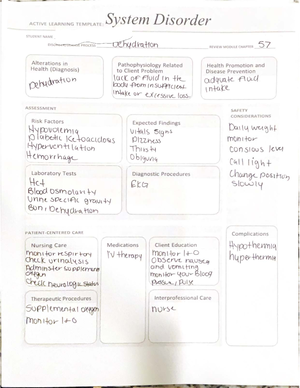 ACTIVE LEARNING TEMPLATE: System Disorder
STUDENT NAME
Dehydration
REVIEW MODULE CHAPTER 57
Alterations in
Health (Diagnosis)
Dehydration
Pathophysiology Related
to Client Problem
lack of fluid in the
body from insufficient
intake or excessive loss.
Health Promotion and
Disease Prevention
adequate fluid
intake
ASSESSMENT
SAFETY
CONSIDERATIONS
Risk Factors
Hypovolemia
Diabetic Ketoacidous
Hyperventilation
Hemorrhage
Expected Findings
Vitals signs
Dizzness
Thirsty
Oliguria
Daily weight
monitor
consious level
Call light
Change position
slowly
Laboratory Tests
Hct
Blood osmolarity
Urine specific gravity
Bun: Dehydration
Diagnostic Procedures
PATIENT-CENTERED CARE
Complications
Hypothermia
hyperthermia
Nursing Care
monitor respitory
check urinalysis
Administer supplemene
oxygen
Check neurologic status
Medications
IV therapy
Client Education
monitor I+O
Observe nausea
and vomiting
monitor your Blood
pressure/pulse
Therapeutic Procedures
Supplemental oxygen
monitor I+O
Interprofessional Care
nurse